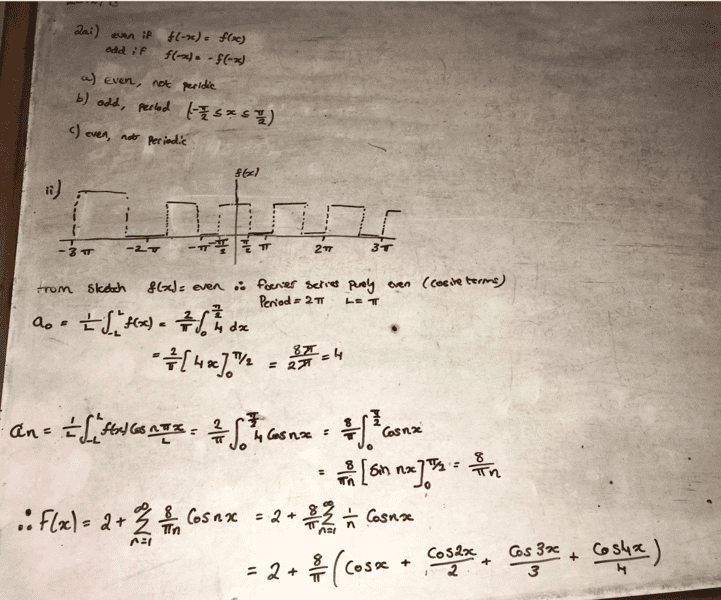 2ai) even if f(-x) = f(x)
odd if f(-x) = -f(-x)
a) even, not peridic
b) odd, period (-π/2 ≤ x ≤ π/2)
c) even, not periodic
ii)
f(x)
-3π -2π -π -π/2 π/2 π 2π 3π
from sketch f(x) = even ∴ foerier series purely even (cosine terms)
Period = 2π L = π
a₀ = 1/L ∫_{-L}^{L} f(x) = 2/π ∫_0^{π/2} 4 dx
= 2/π [4x]_0^{π/2} = 8π/2π = 4
an = 1/L ∫_{-L}^{L} f(x) cos nπx/L = 2/π ∫_0^{π/2} 4 cos nx = 8/π ∫_0^{π/2} cos nx
= 8/πn [sin nx]_0^{π/2} = 8/πn
∴ F(x) = 2 + ∑_{n=1}^{∞} 8/πn Cos nx = 2 + 8/π ∑_{n=1}^{∞} 1/n Cos nx
= 2 + 8/π (Cos x + Cos 2x/2 + Cos 3x/3 + Cos 4x/4)